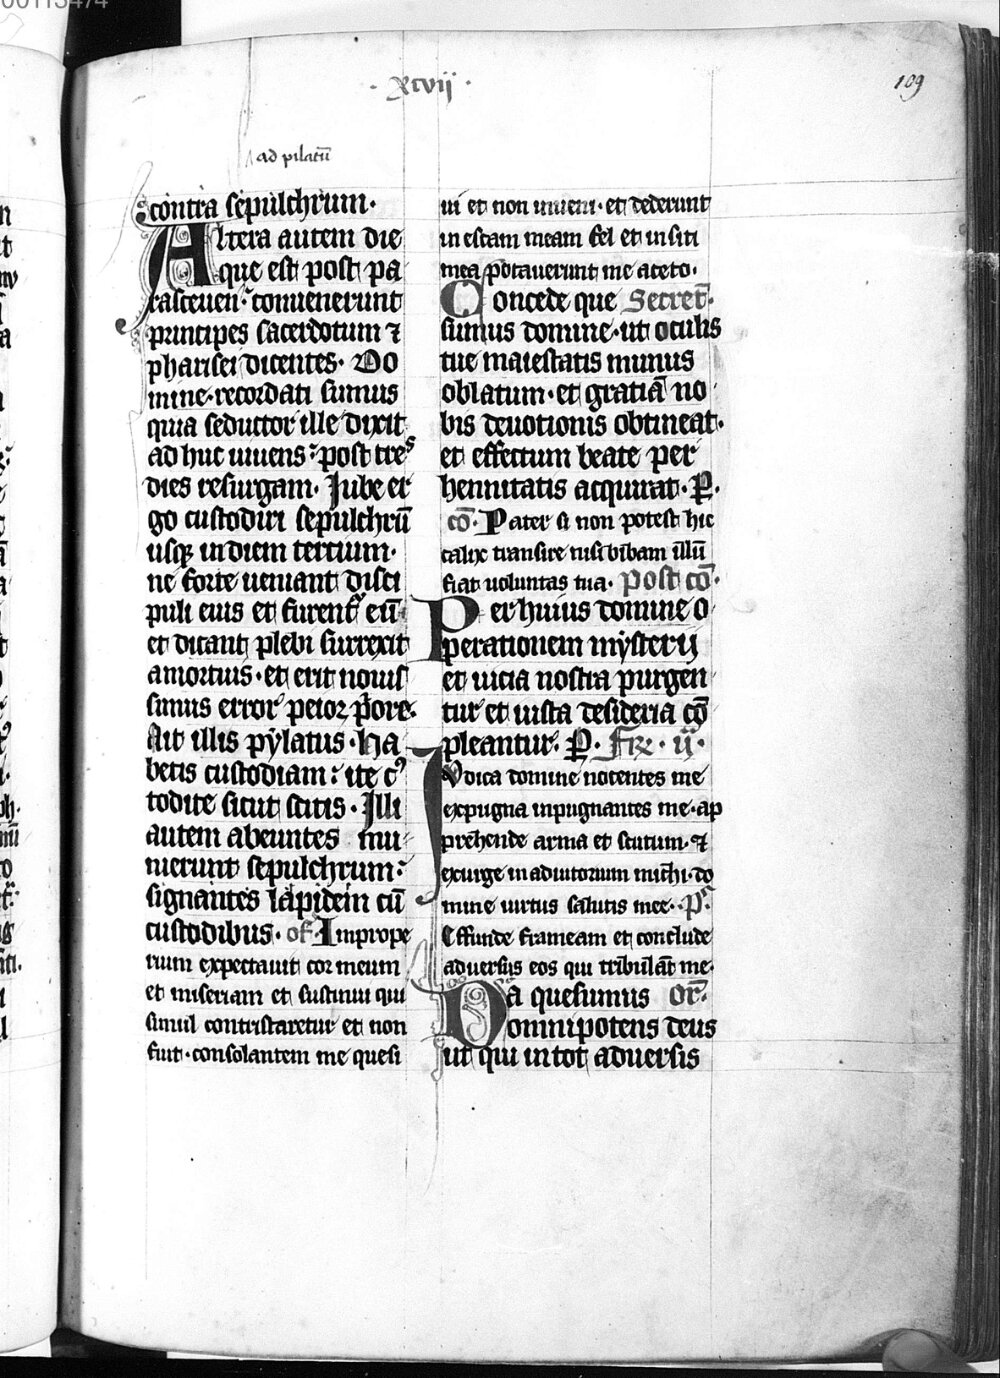 00113474
· xcvij ·
109
ad pilatū
contra sepulchrum·
Altera autem die
que est post pa
rasceuen· conuenerunt
principes sacerdotum ⁊
pharisei dicentes· Do
mine·recordati sumus
quia seductor ille dixit
ad huc uiuens· post tres
dies resurgam· Jube er
go custodiri sepulchrū
usqꝫ in diem tertium·
ne forte ueniant disci
puli eius et furent᷑ eū·
et dicant plebi surrexit
amortuis·et erit nouis
simus error peior p̄ore·
Ait illis pylatus·ha
betis custodiam: ite cꝰ
todite sicut scitis· Illi
autem abeuntes mu
nierunt sepulchrum·
signantes lapidem cū
custodibus· of· Imprope
rium expectauit cor meum
et miseriam et sustinui qui
simul contristaretur et non
fuit·consolantem me quesi
ui et non inueni·et dederunt
in escam meam fel et in siti
mea potauerunt me aceto·
Concede que Secret̄·
sumus domine·ut oculis
tue maiestatis munus
oblatum·et gratiā no
bis deuotionis obtineat·
et effectum beate per
hennitatis acquirat·P̲·
cō· Pater si non potest hic
calix transire nisi bibam illū
fiat uoluntas tua· Post cō
Per huius domine o
perationem mysterij
et uicia nostra purgen
tur et iusta desideria cō
pleantur· P̲· Fr̄· ij·
Iudica domine nocentes me
expugna inpugnantes me·ap
prehende arma et scutum·⁊
exurge in adiutorium michi·do
mine uirtus salutis mee·Ps̄
Effunde frameam et conclude
aduersus eos qui tribulāt me·
Da quesumus or̄·
omnipotens deus
ut qui in tot aduersis